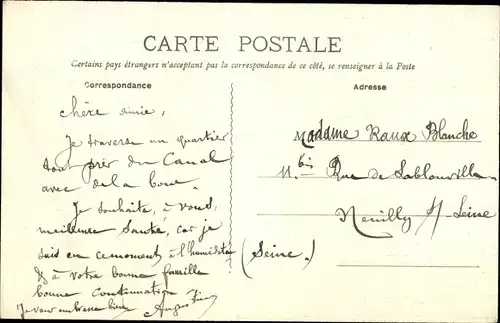 CARTE POSTALE
Certains pays étrangers n'acceptent pas la correspondance de ce côté, se renseigner à la Poste
Correspondance
Adresse
chère amie,
Je traverse un quartier
tout près du Canal
avec de la boue.
Je souhaite, à vous,
meilleure santé, car je
suis en ce moment à l'humidité
à votre bonne famille
bonne continuation
Je vous embrasse bien
Madame Raux Blanche
11 bis Rue de Sablonville
Neuilly s/ Seine
(Seine).